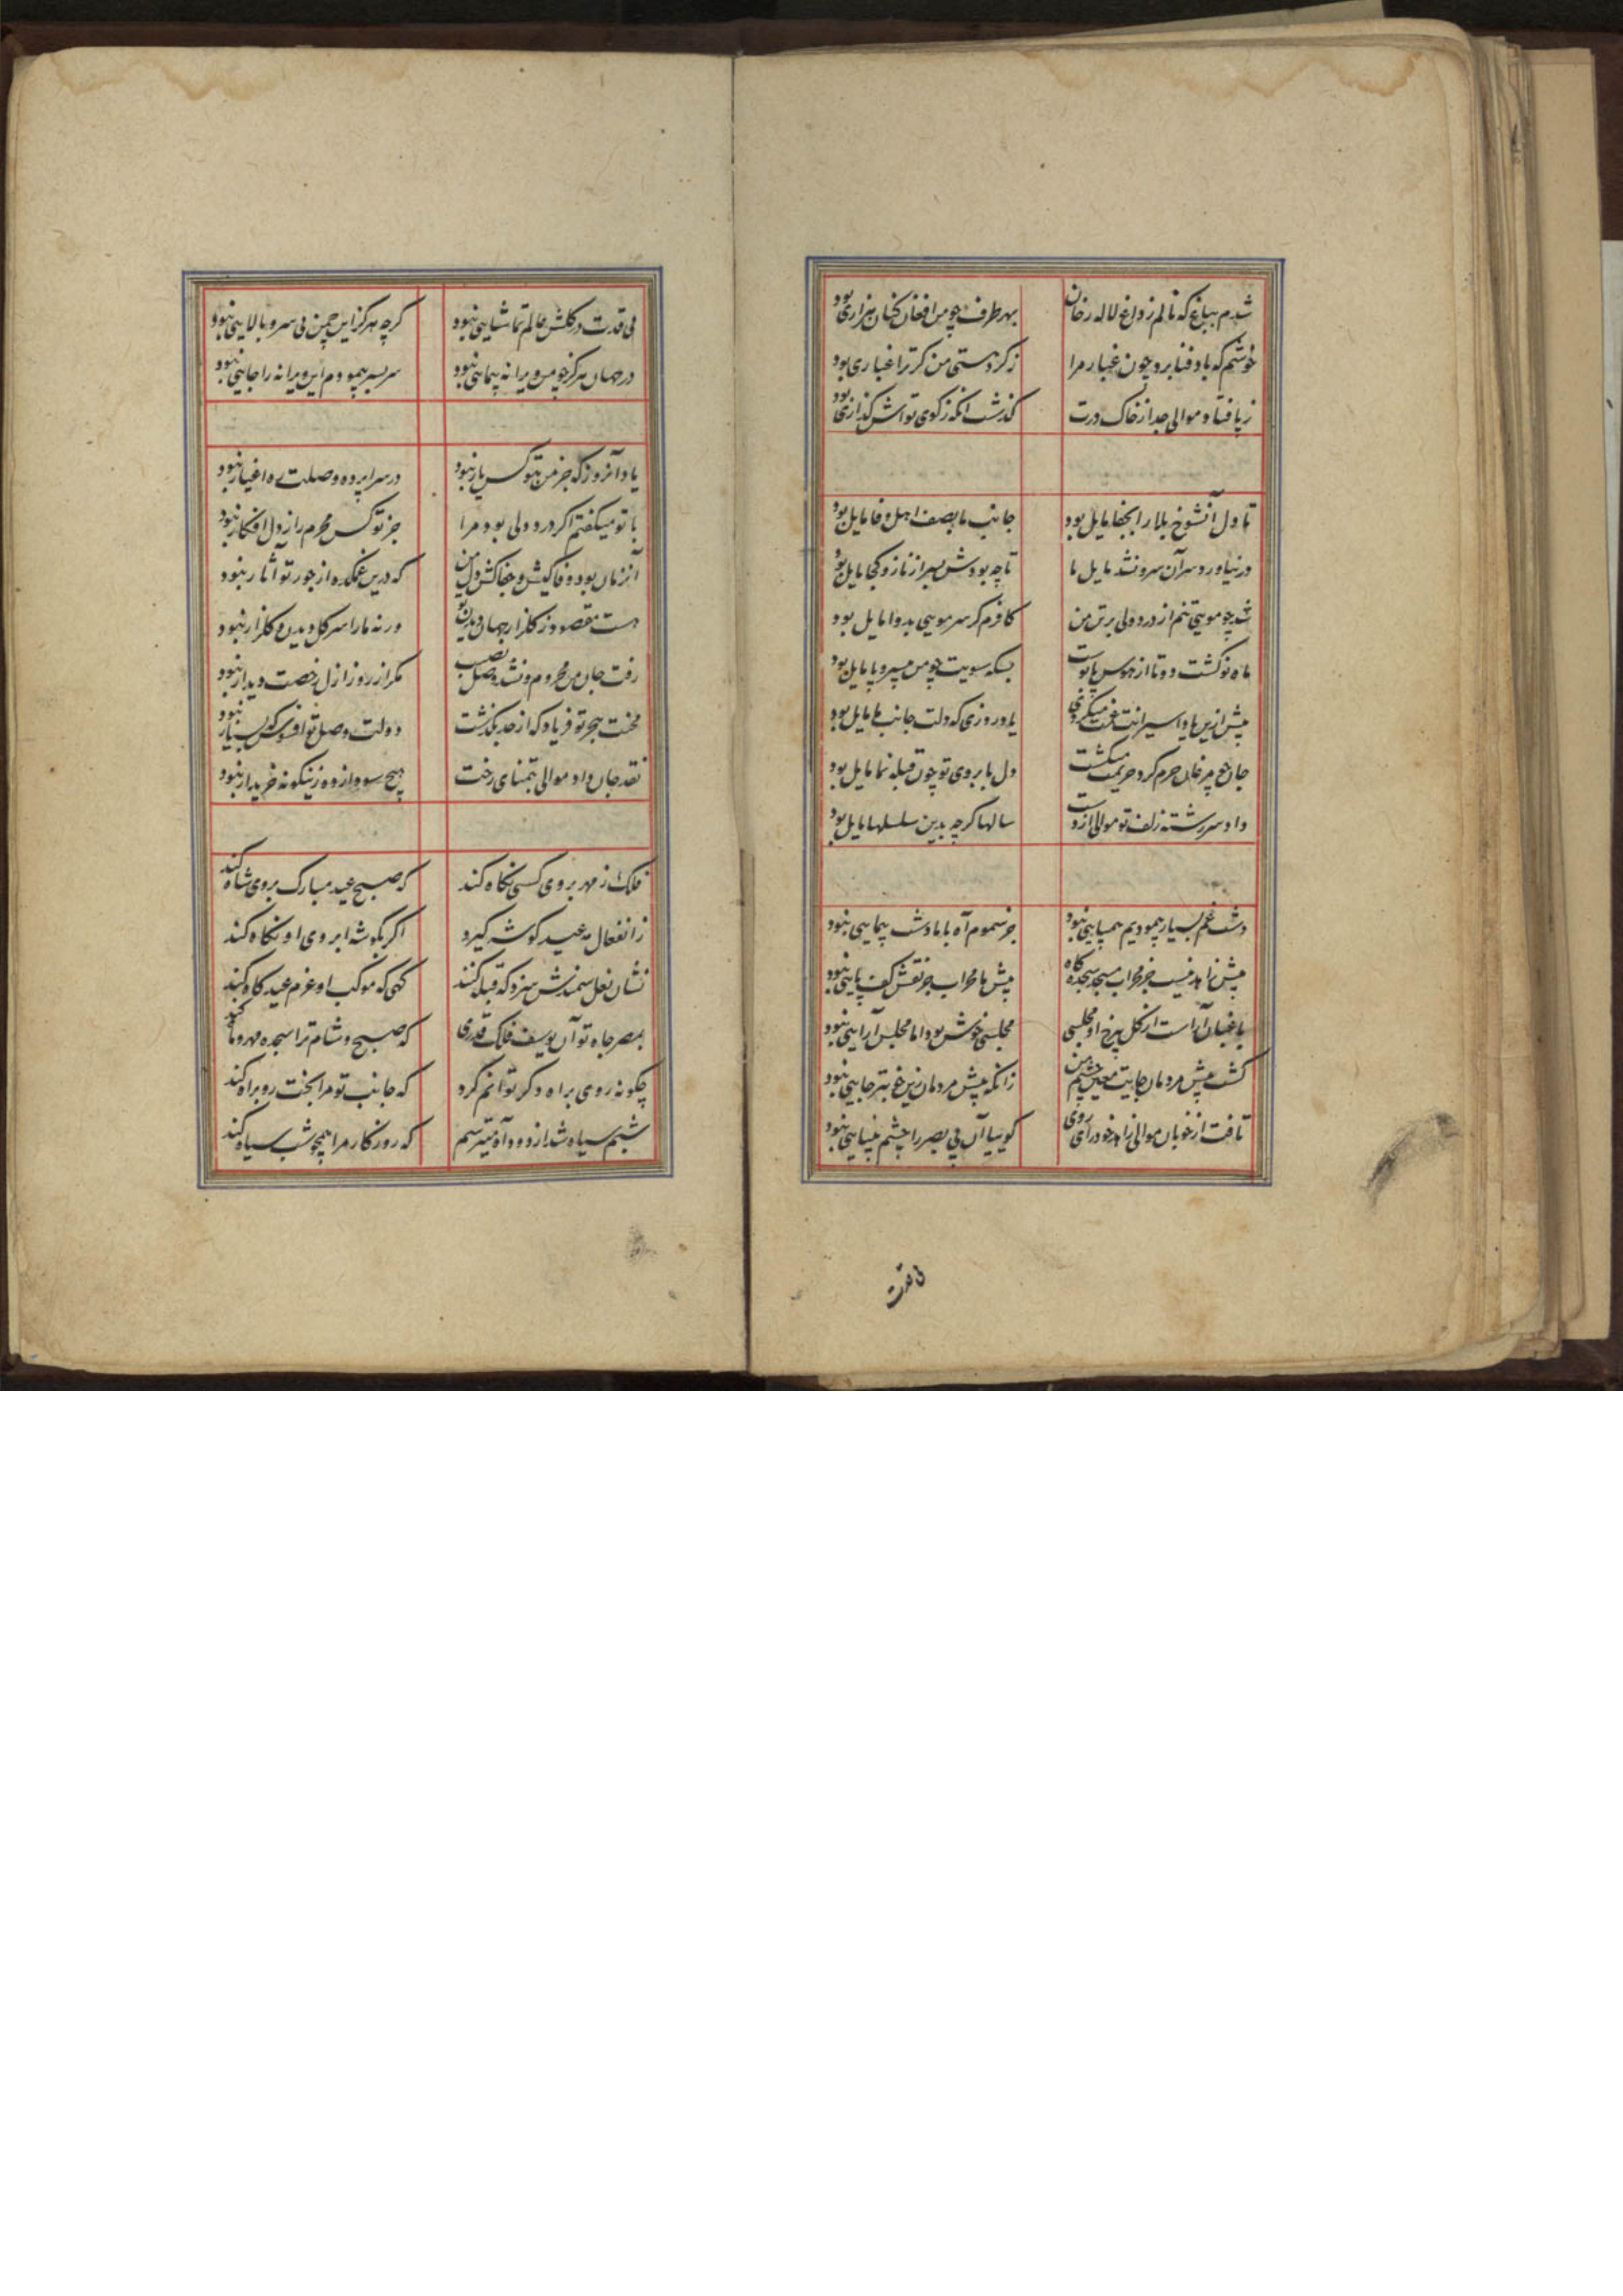 شدم بباغ که نالم ز داغ لاله رخان بهر طرف چو من افغان کنان هزاری بود
خوشم که باد فنا برد چون غبار مرا ز کرد هستی من کر ترا غباری بود
ز پا فتاد موالی جدا ز خاک درت کذشت آنکه ز کوی تواش کذاری بود
تا دل آنشوخ بلا را بجفا مایل بود جانب ما بصف اهل وفا مایل بود
در نیاورد سر آن سرو نشد مایل ما تا چه بودش بسر از ناز و کجا مایل بود
شد چو مویی تنم از درد ولی بر تن من کافرم کر سر مویی بدوا مایل بود
ماه نو کشت دوتا از هوس پابوست بسکه سویت چو من بی سر و پا مایل بود
پیش ازین یاد اسیرانت میکرد یاد روزی که دلت جانب ما مایل بود
جان چو مرغان حرم کرد حریمت میکشت دل بابروی تو چون قبله نما مایل بود
داد سر رشته زلف تو موالی از دست سالها کرچه بدین سلسلها مایل بود
دشت غم بسیار پیمودیم همپایی نبود جز سموم آه با ما دشت پیمایی نبود
پیش زاهد نیست جز محراب مسجد سجده کاه پیش ما محراب جز نقش کف پایی نبود
باغبان آراست از کل بیرخ او مجلسی مجلسی خوش بود اما مجلس آرایی نبود
کشت پیش مردمان جایت معین چشم من زانکه پیش مردمان زین خوبتر جایی نبود
تافت از خوبان موالی زاهد خود رای روی کوییا آن بی بصر را چشم بینایی نبود
بی قدت
بی قدت در کلشن عالم تماشایی نبود کرچه هرکز این چمن بی سرو بالایی نبود
در جهان هرکز چو من ویرانه پیمایی نبود سر بسر پیمودم این ویرانه را جایی نبود
یاد آنروز که جز من بتو کس یار نبود در سراپرده وصلت ره اغیار نبود
با تو میکفتم اکر درد دلی بود مرا جز تو کس محرم راز دل افکار نبود
آنزمان بود وفا کیش و جفا کش دل من که درین غمکده از جور تو آثار نبود
هست مقصود ز کلزار جهان دیدن تو ورنه ما را سر کل دیدن و کلزار نبود
رفت جان من محروم و نشد وصل نصیب مکر از روز ازل رخصت دیدار نبود
محنت هجر تو فریاد که از حد بکذشت دولت وصل تو افسوس که بسیار نبود
نقد جان داد موالی بتمنای رخت هیچ سودا زده زینکونه خریدار نبود
فلک ز مهر بروی کسی نکاه کند که صبح عید مبارک بروی شاه کند
ز انفعال مه عید کوشه کیرد اکر بکوشه ابروی او نکاه کند
نشان نعل سمندش سزد که قبله کنند کهی که موکب او عزم عید کاه کند
بمصر جاه تو آن یوسف فلک قدری که صبح و شام ترا سجده مهر و ماه کند
چکونه روی براه دکر توانم کرد که جانب تو مرا بخت رو براه کند
شبم سیاه شد از دود آه میترسم که روزکار مرا همچو شب سیاه کند